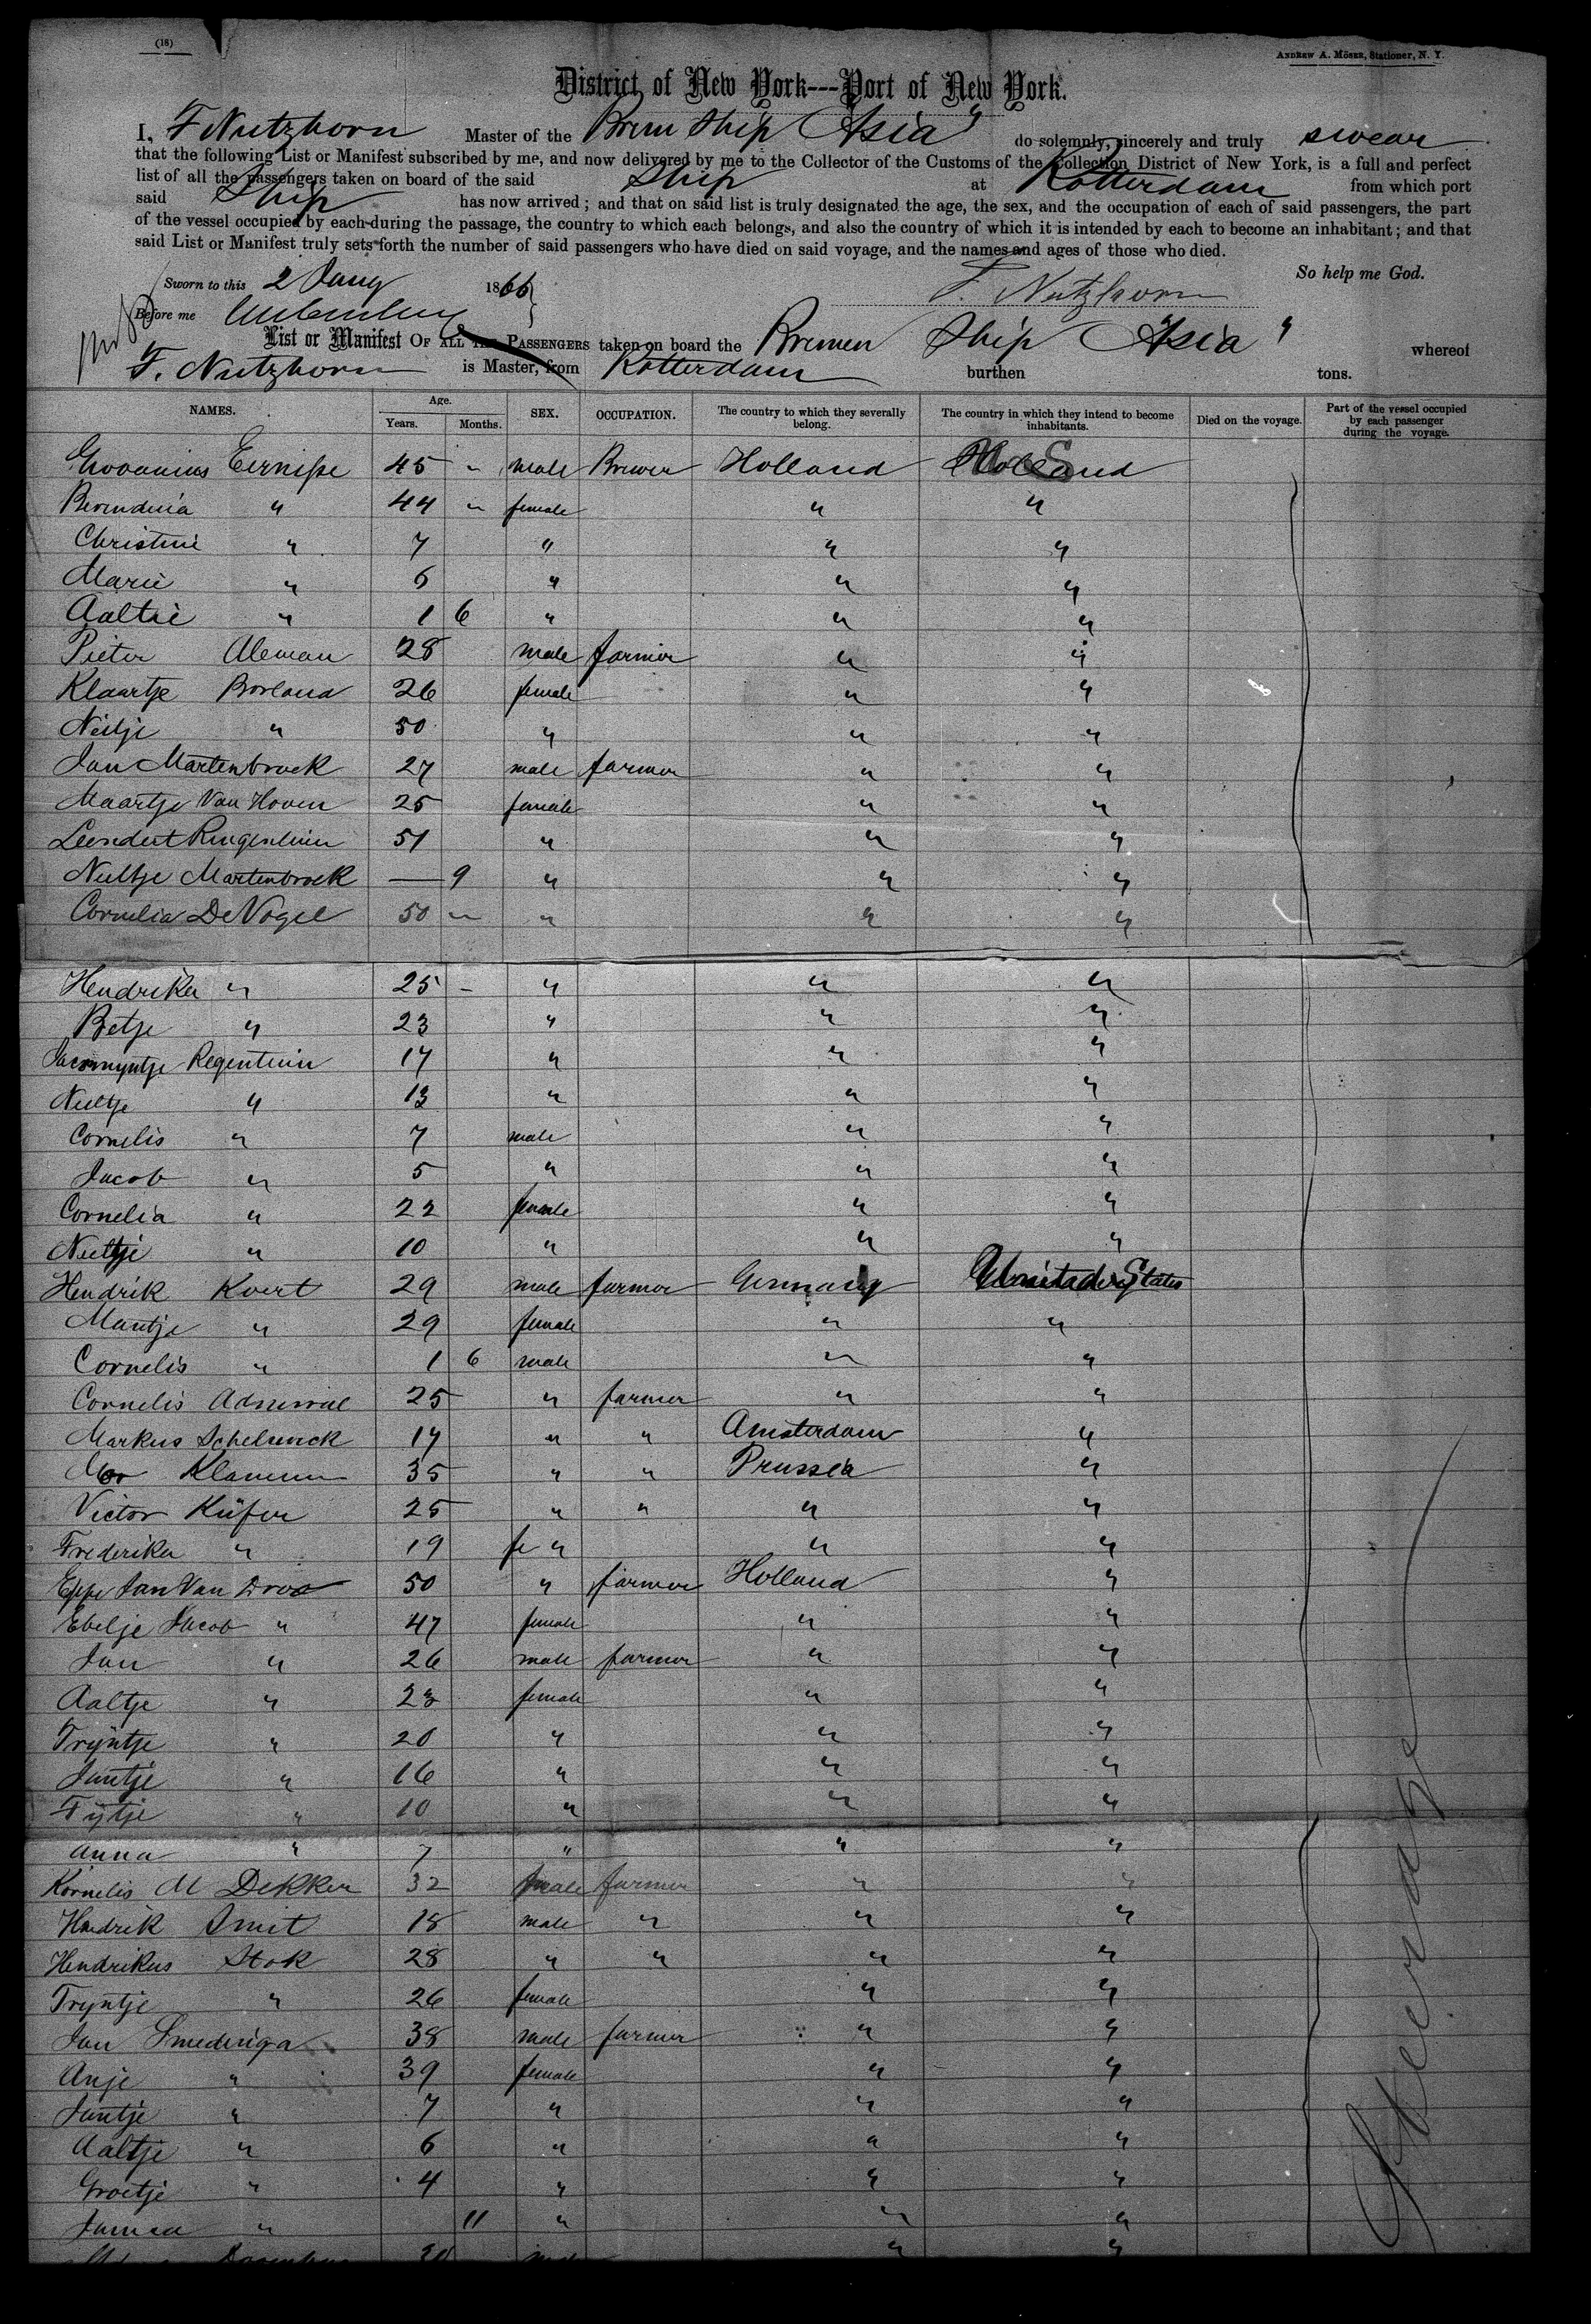 (18)
ANDREW A. MÖSER, Stationer, N. Y.
District of New York---Port of New York.
I, F Nutzhorn Master of the Brem Ship Asia" do solemnly, sincerely and truly swear
that the following List or Manifest subscribed by me, and now delivered by me to the Collector of the Customs of the Collection District of New York, is a full and perfect
list of all the passengers taken on board of the said Ship at Rotterdam from which port
said Ship has now arrived; and that on said list is truly designated the age, the sex, and the occupation of each of said passengers, the part
of the vessel occupied by each during the passage, the country to which each belongs, and also the country of which it is intended by each to become an inhabitant; and that
said List or Manifest truly sets forth the number of said passengers who have died on said voyage, and the names and ages of those who died.
So help me God.
Sworn to this 2 1866
F. Nutzhorn
Before me
List or Manifest OF ALL THE PASSENGERS taken on board the Bremen Ship Asia" whereof
F. Nutzhorn is Master, from Rotterdam burthen tons.
NAMES. Age. Years. Months. SEX. OCCUPATION. The country to which they severally belong. The country in which they intend to become inhabitants. Died on the voyage. Part of the vessel occupied by each passenger during the voyage.
45 " male Brewer Holland
Berendina " 44 " female " "
Christine " 7 " " "
Marie " 6 " " "
Aaltje " 1 6 " " "
Pieter Aleman 28 male farmer " "
Klaartje Borland 26 female " "
Neeltje " 50 " " "
Jan Martenbroek 27 male farmer " "
Maartje Van Hoven 25 female " "
Leendert 51 " " "
Neeltje Martenbroek — 9 " " "
Cornelia De Vogel 50 " " " "
Hendrika " 25 - " " "
Betje " 23 " " "
Jacomyntje Regentuin 17 " " "
Neeltje " 13 " " "
Cornelis " 7 male " "
Jacob " 5 " " "
Cornelia " 22 female " "
Neeltje " 10 " " "
Hendrik Kvert 29 male farmer Germany United States
Mantje " 29 female " "
Cornelis " 1 6 male " "
Cornelis Admiral 25 " farmer " "
Markus 17 " " Amsterdam "
35 " " Prussia "
Victor Küfer 25 " " " "
Frederika " 19 fe " " "
Eppe Jan Van Droo 50 " farmer Holland "
Ebelje Jacob " 47 female " "
Jan " 26 male farmer " "
Aaltje " 23 female " "
Tryntje " 20 " " "
Jantje " 16 " " "
Fytje " 10 " " "
Anna " 7 " " "
Kornelis M Dekker 32 male farmer " "
Hendrik Smit 18 male " " "
Hendrikus Stok 28 " " " "
Tryntje " 26 female " "
Jan Smedinga 38 male farmer " "
Anje " 39 female " "
Jantje " 7 " " "
Aaltje " 6 " " "
Groetje " 4 " " "
" 11 " " "
Steerage